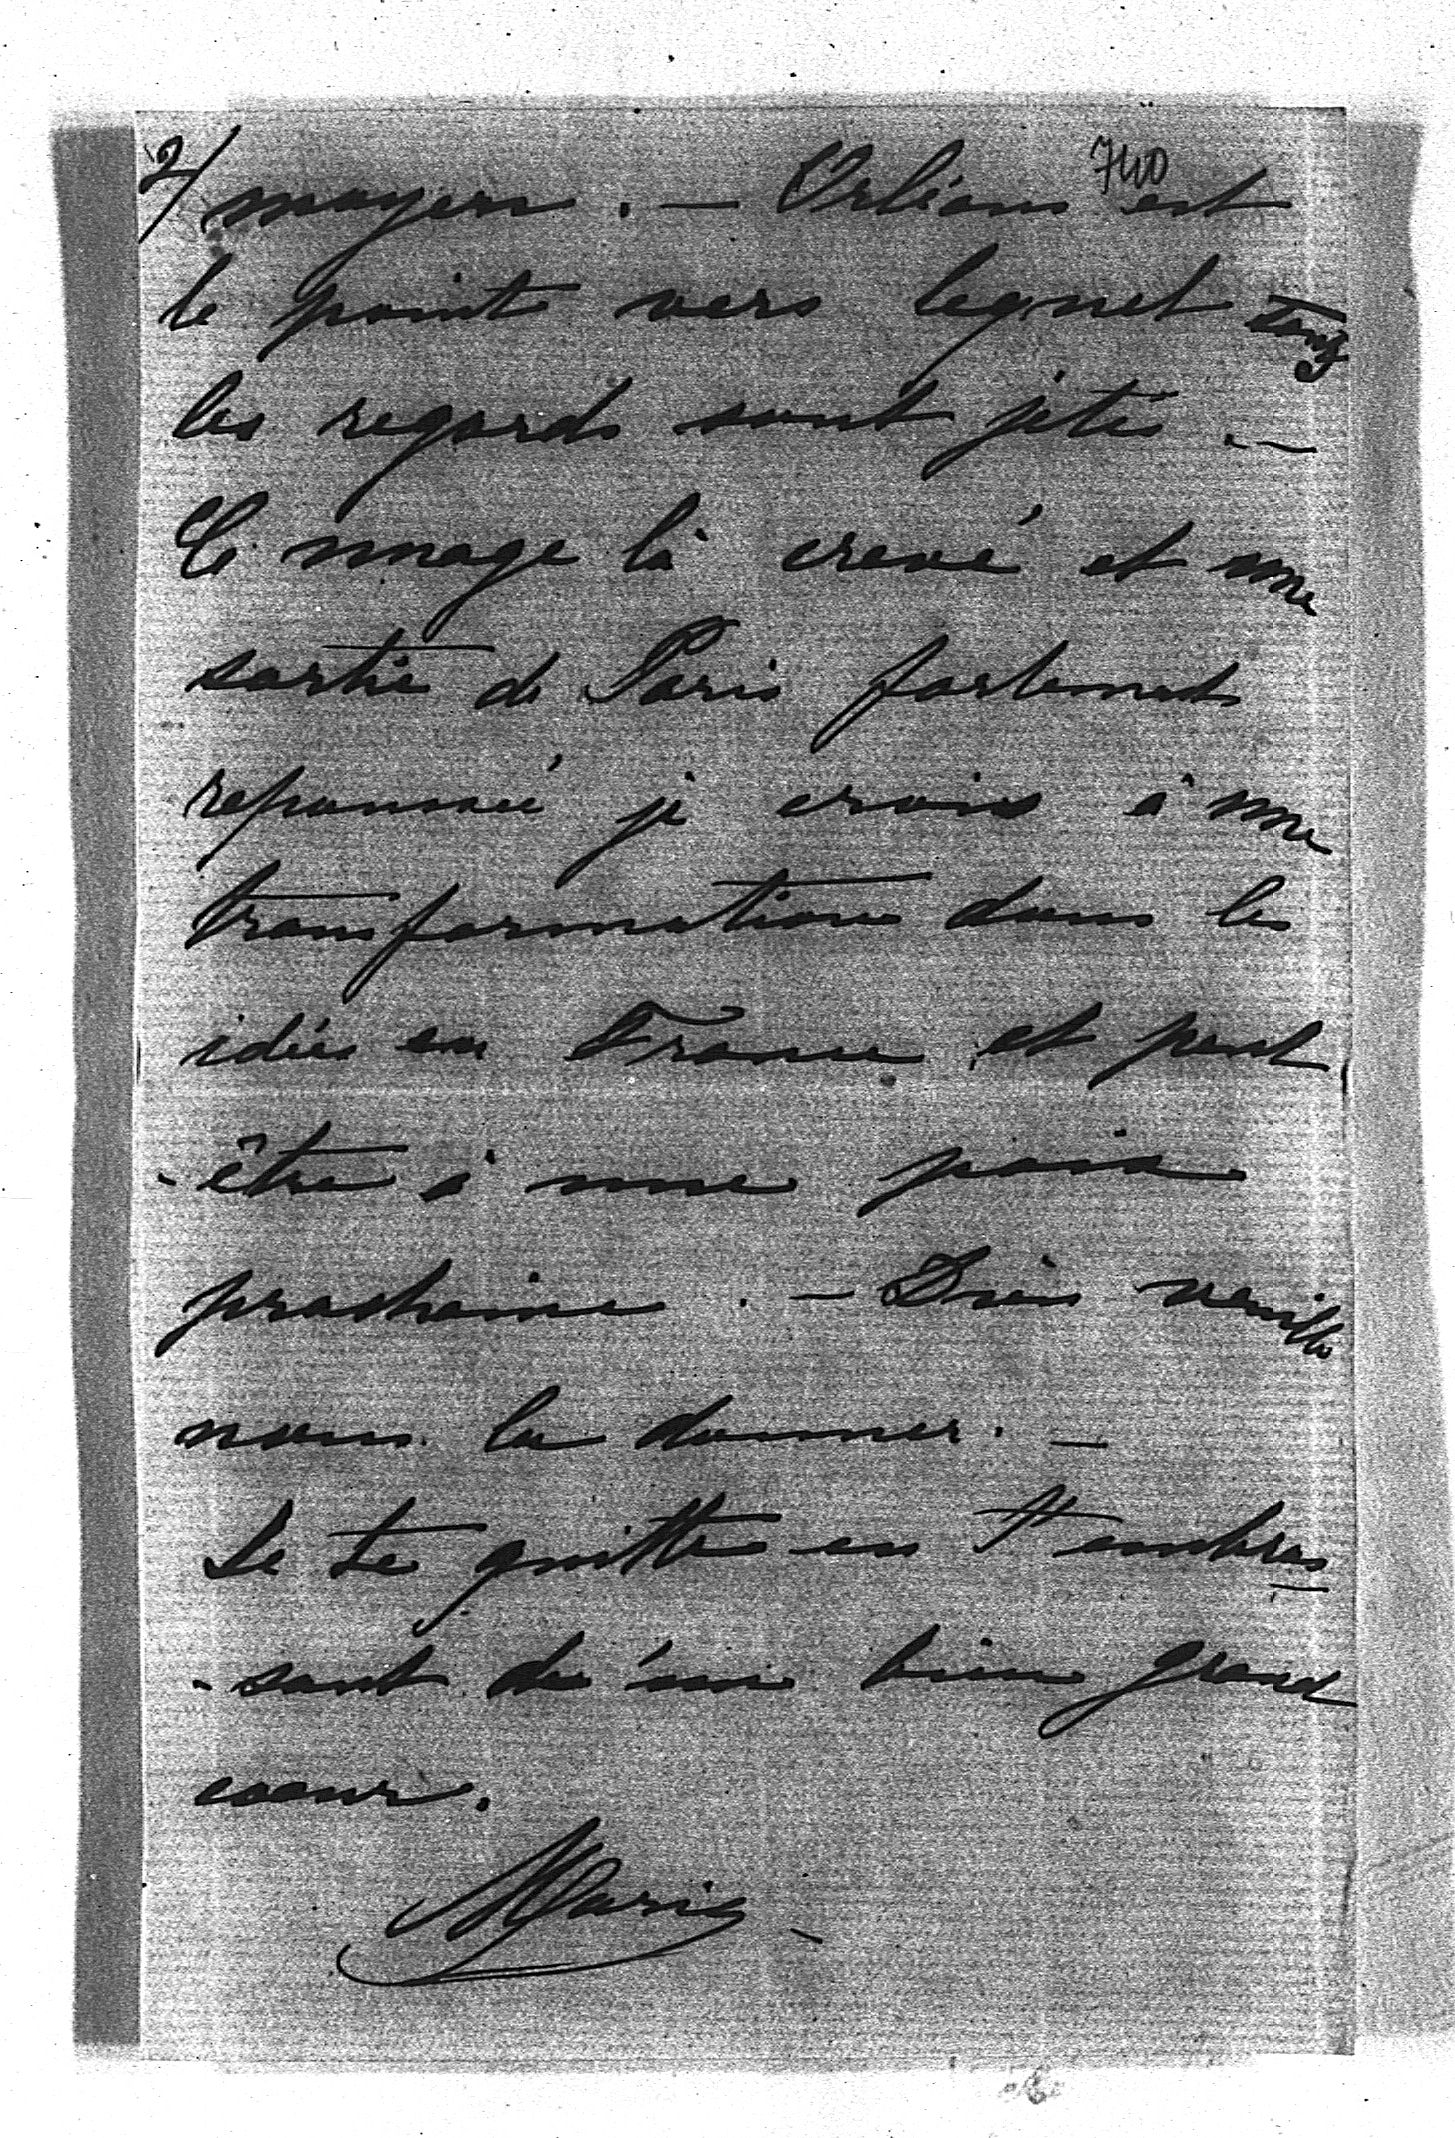 2/ 740
moyen. — Orléans est
le point vers lequel tous
les regards sont jetés. —
Ce nuage là crevé et une
sortie de Paris fortement
repoussée je crois à une
transformation dans les
idées en France et peut
-être à une paix
prochaine. — Dieu veuille
nous la donner. —
Je te quitte en t'embras
-sant de un bien grand
coeur.
Marie